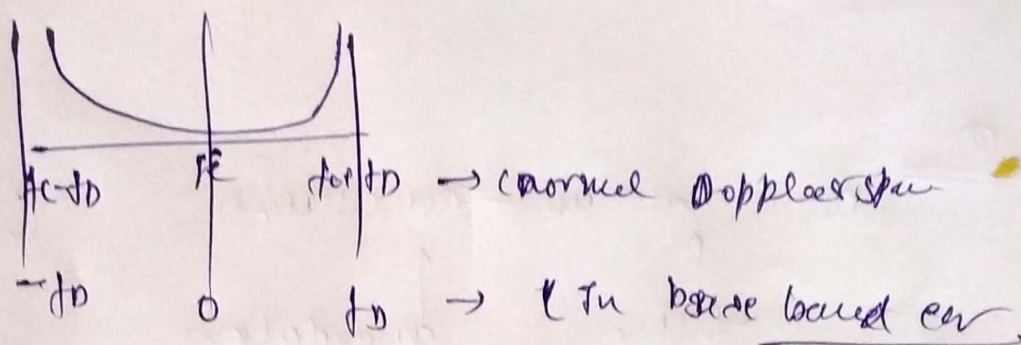 fc-fD fc fc+fD → (normal Doppler spe
-fD 0 fD → (In base band en